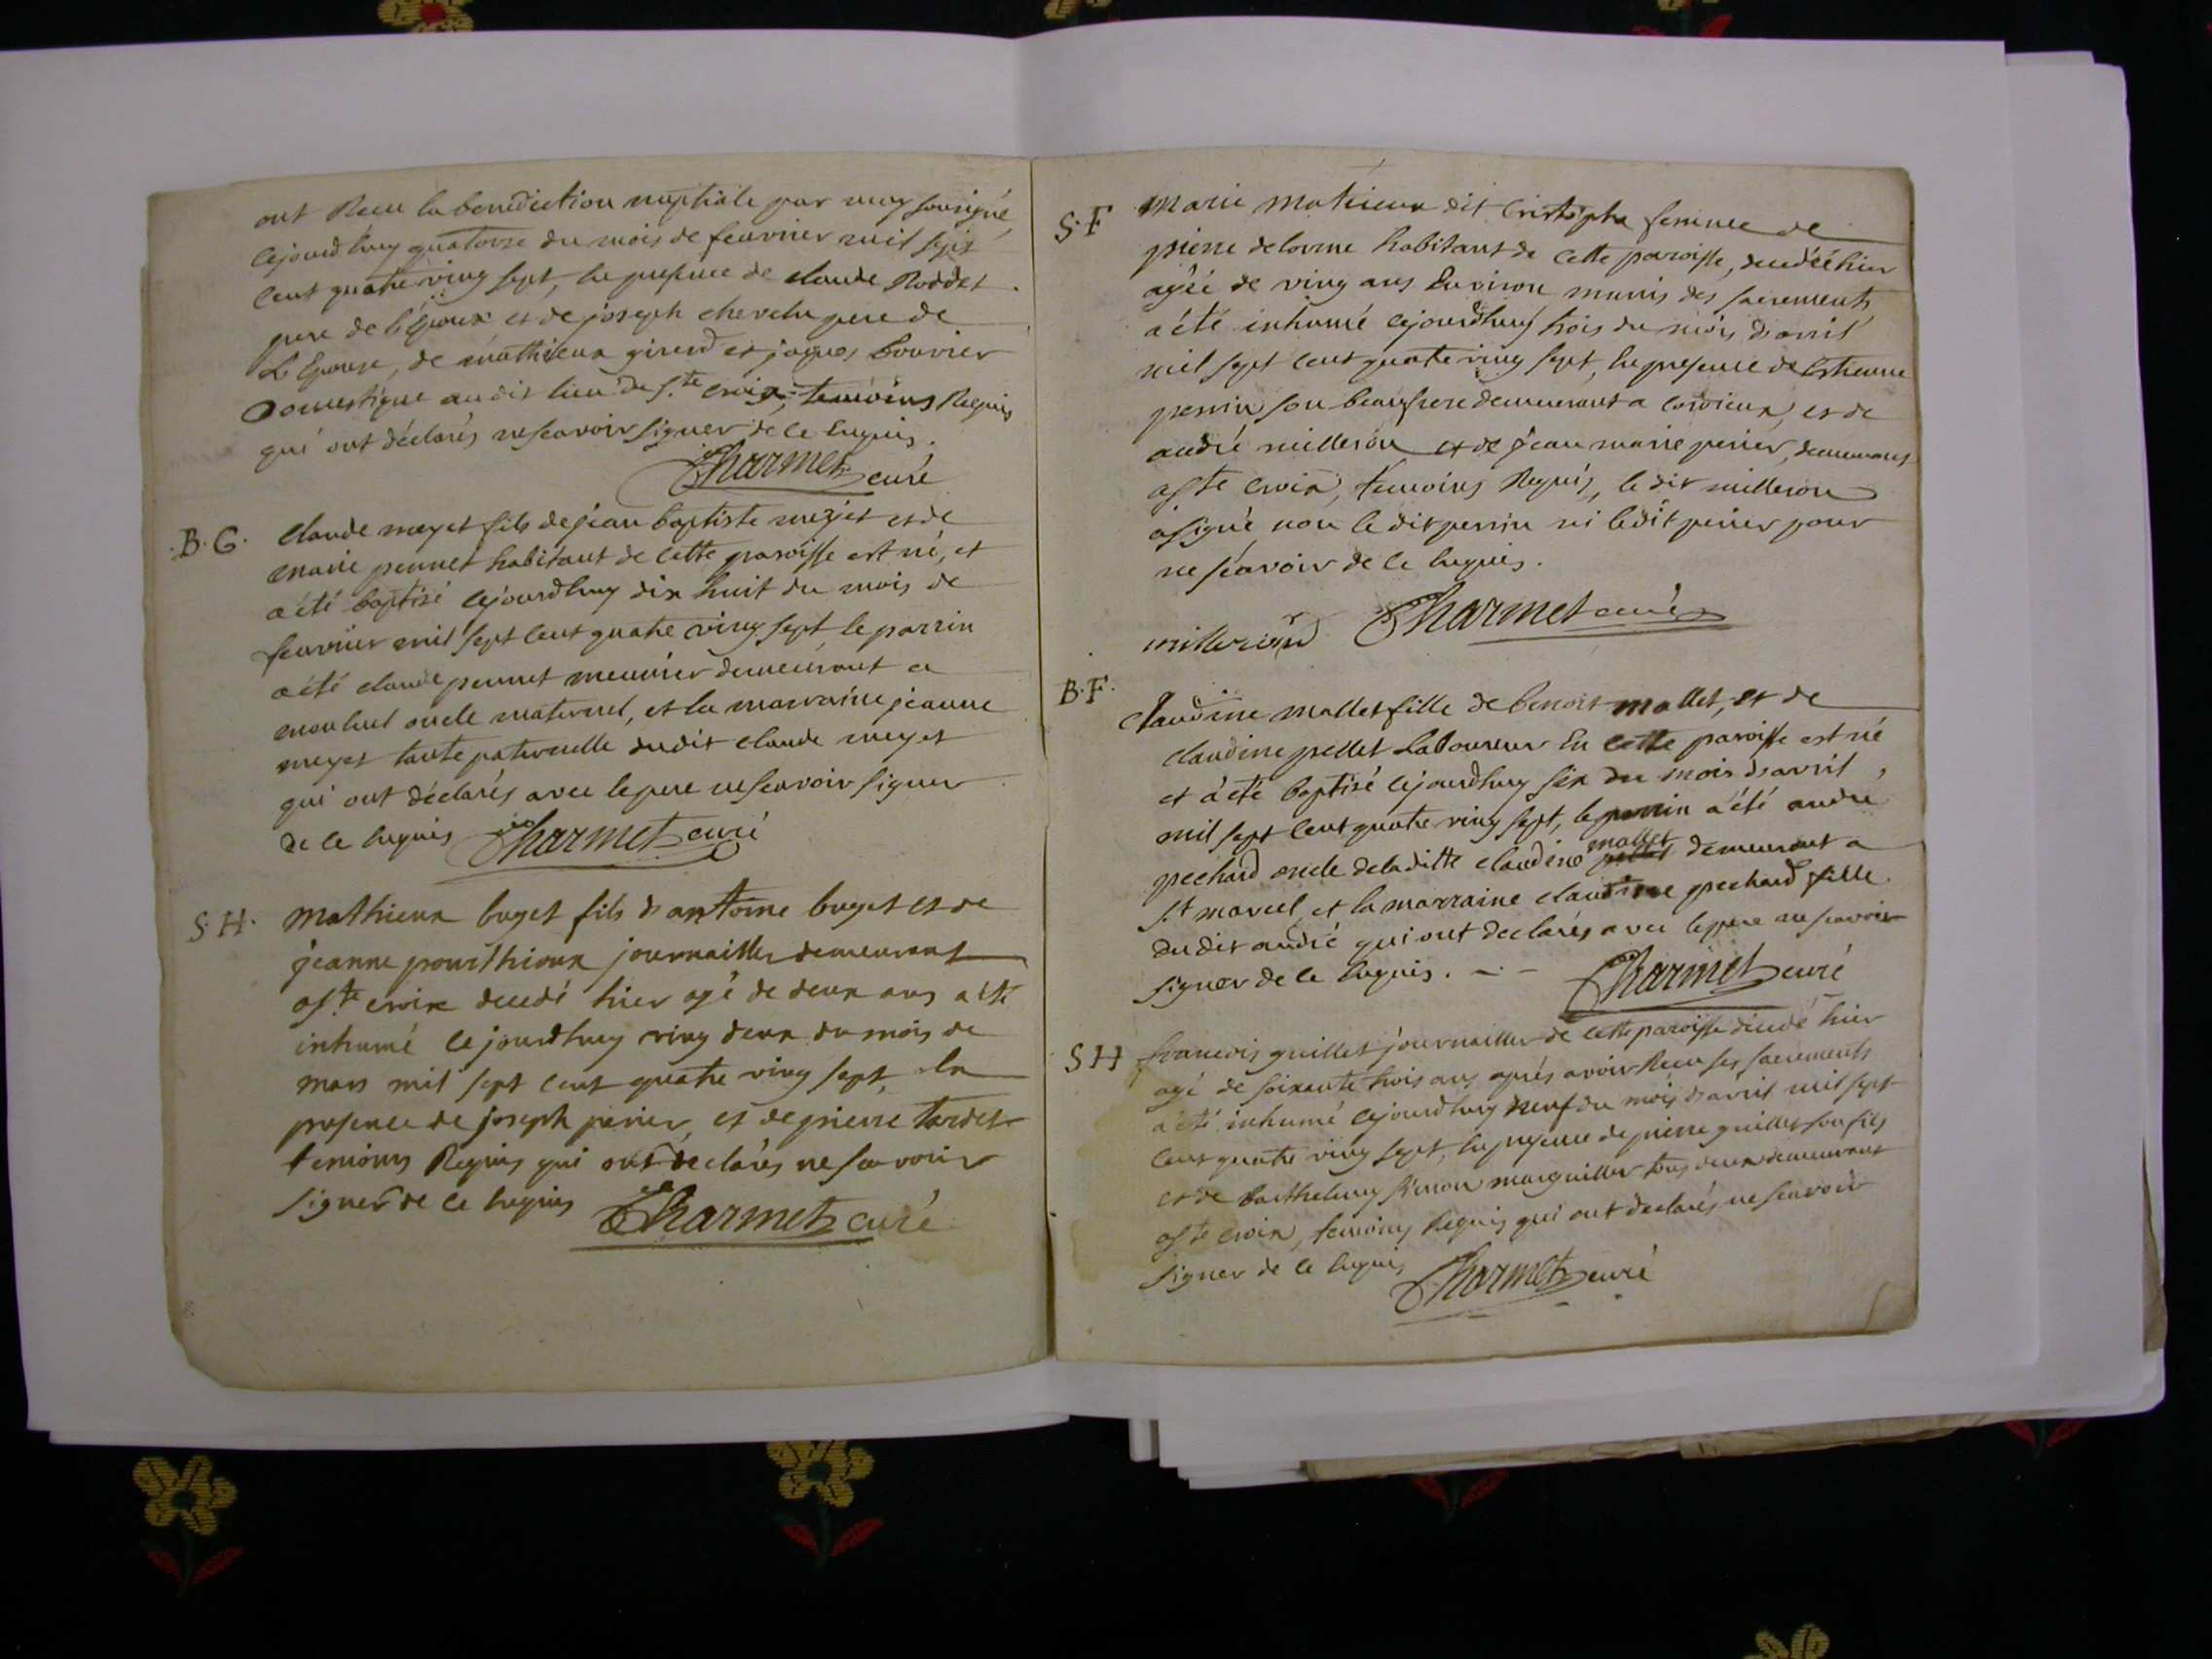 ont Receu la benediction nuptiale par moy sousigné
cejourd'huy quatorze du mois de feuvrier mil sept
cent quatre ving sept, en presence de claude Roddet
pere de L'Epoux et de joseph chervelu pere de
L'Epouse, de mathieux girerd et jaques bouvier
Domestique au dit lieu de S.te croix, temoins Requis
qui ont déclarés ne scavoir signer de ce Enquis.
Charmet curé
B. G. claude meyet fils de jean baptiste meyet et de
marie pennet habitant de cette paroisse est né, et
a été baptisé cejourd'huy dix huit du mois de
feuvrier mil sept cent quatre ving sept le parrin
a été claude pennet meunier demeurant a
monluel oncle maternel, et la marraine jeanne
meyet tante paternelle dudit claude meyet
qui ont déclarés avec le pere ne scavoir signer
de ce enquis Charmet curé
S. H. Mathieux buget fils d'antoine buget et de
jeanne pourthioux journaillier demeurant
a S.te croix decedé hier agé de deux ans a été
inhumé cejourd'huy ving deux du mois de
mars mil sept cent quatre ving sept, En
presence de joseph perier, et de pierre tardet
temoins Requis qui ont déclarés ne scavoir
signer de ce enquis Charmet curé
S. F Marie Mathieux dit Cristophe femme de
pierre delorme habitant de cette paroisse, decedéé hier
agéé de ving ans Environ munis des sacrements
a été inhumé cejourd'huy trois du mois d'avril
mil sept cent quatre ving sept, En presence de Estienne
perrin son beaufrere demeurant a cordieux, et de
andré milleron et de jean marie perier, demeurans
a S.te croix, temoins Requis, le dit milleron
a signé non le dit perrin ni le dit perier pour
ne scavoir de ce enquis.
millerion Charmet curé
B. F. Claudine mallet fille de benoit mallet, et de
claudine pellet Laboureur En cette paroisse est né
et a été baptisé cejourd'huy six du mois d'avril
mil sept cent quatre ving sept, le parrin a été andre
pechard oncle de la ditte claudine mallet demeurant a
S.t marcel, et la marraine claudine pechard fille
du dit andré qui ont declarés avec le pere ne scavoir
signer de ce enquis. - - Charmet curé
S H francois guillet journaillier de cette paroisse decedé hier
agé de soixante trois ans aprés avoir Receu ses sacrements
a été inhumé cejourd'huy neuf du mois d'avril mil sept
cent quatre ving sept, En presence de pierre guillet son fils
et de barthelemy simon marguillier tous deux demeurant
a S.te croix, temoins Requis qui ont declarés ne scavoir
signer de ce enquis Charmet curé